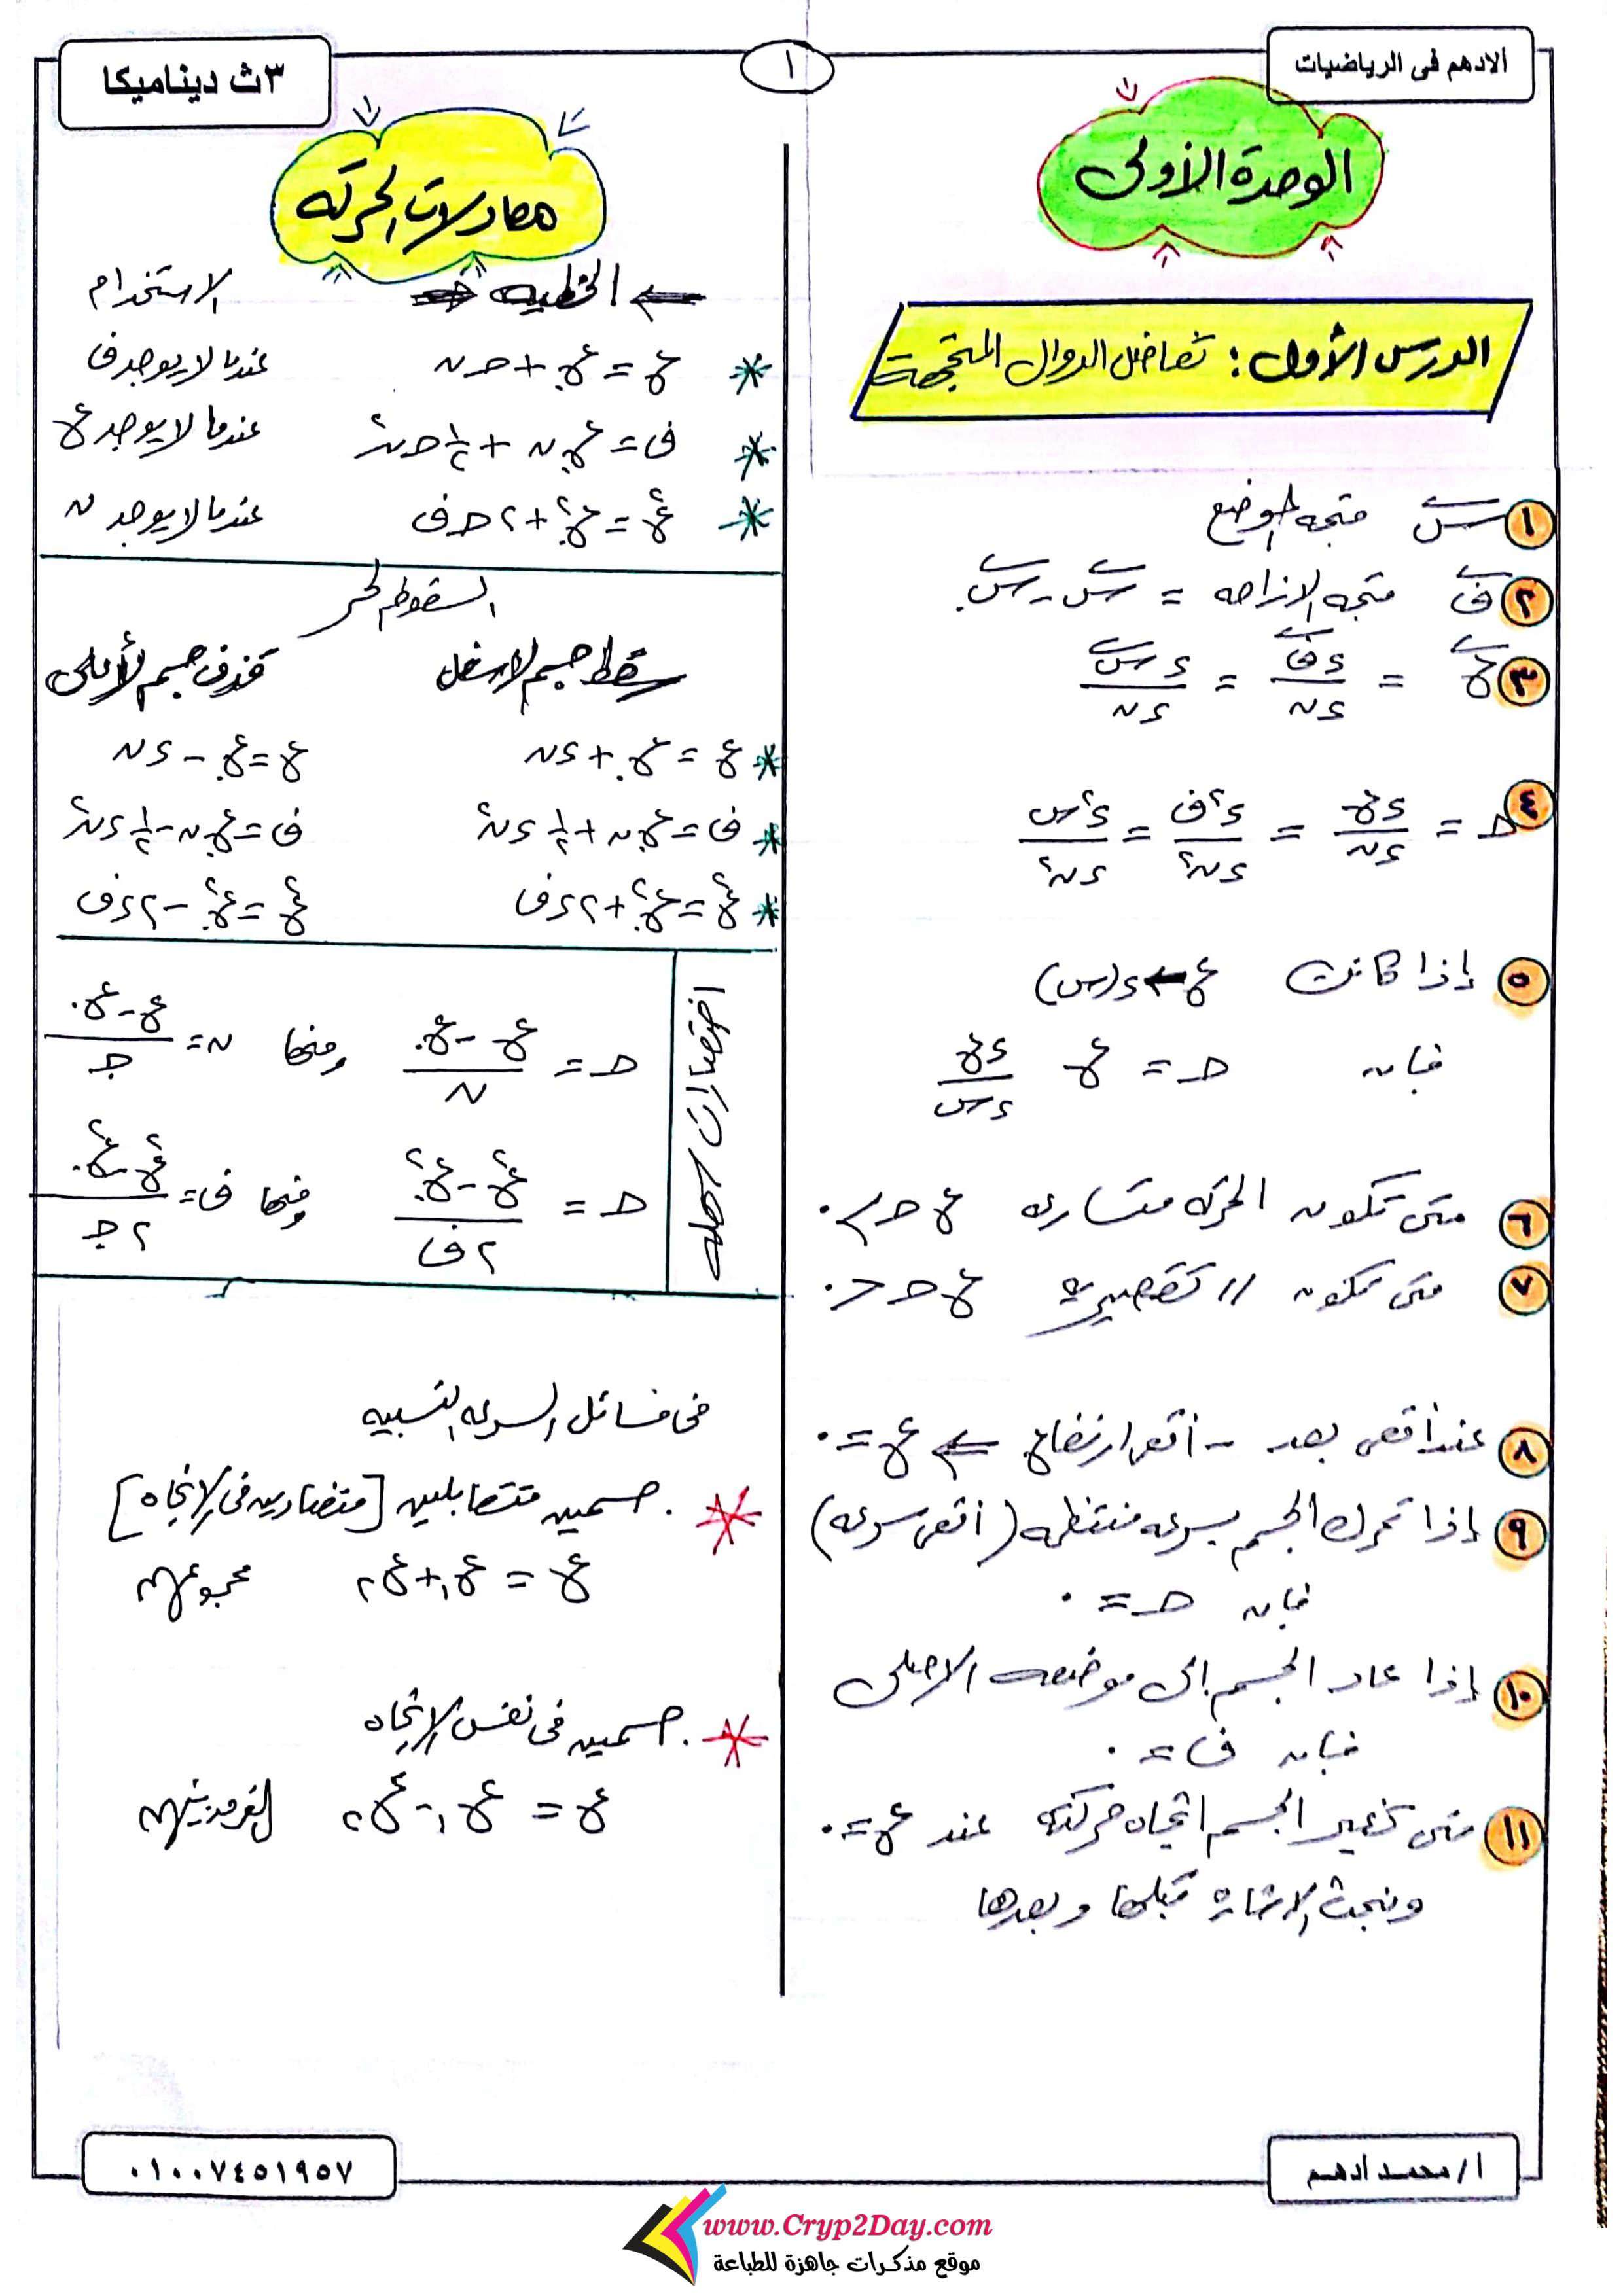 الادهم فى الرياضيات
١
٣ث ديناميكا
الوحدة الأولى
الدرس الأول: تفاضل الدوال المتجهة
١ س متجه الوضع
٢ ف متجه الازاحه = س - س.
٣ ع = ءف/ءن = ءس/ءن
٤ حـ = ءع/ءن = ء²ف/ءن² = ء²س/ءن²
٥ إذا كانت ع ← د(س)
فإن حـ = ع ءع/ءس
٦ متى تكون الحركه متسارعه ع حـ > ٠
٧ متى تكون // تقصيرية ع حـ < ٠
٨ عند أقصى بعد - أقصى ارتفاع ⇐ ع = ٠
٩ إذا تحرك الجسم بسرعه منتظمه (أقصى سرعه)
فإن حـ = ٠
١٠ إذا عاد الجسم إلى موضعه الاصلى
فإن ف = ٠
١١ متى يغير الجسم اتجاه حركته عند ع = ٠
ونبحث الاشارة قبلها وبعدها
معادلات الحركه
⇐ الخطيه الاستخدام
* ع = ع. + حـ ن عندما لا يوجد ف
* ف = ع. ن + ١/٢ حـ ن² عندما لا يوجد ع
* ع² = ع.² + ٢ حـ ف عندما لا يوجد ن
السقوط الحر
سقط جسم لاسفل قذف جسم لأعلى
* ع = ع. + ءن ع = ع. - ءن
* ف = ع. ن + ١/٢ ءن² ف = ع. ن - ١/٢ ءن²
* ع² = ع.² + ٢ءف ع² = ع.² - ٢ءف
اختصارات سهله
حـ = (ع - ع.)/ن ومنها ن = (ع - ع.)/جـ
حـ = (ع² - ع.²)/٢ف ومنها ف = (ع² - ع.²)/٢جـ
فى مسائل السرعه النسبيه
* . جسمين متقابلين [متضادين فى الاتجاه]
ع = ع١ + ع٢ مجموعهم
* . جسمين فى نفس الاتجاه
ع = ع١ - ع٢ الفرق بينهم
أ/محمد أدهم
٠١٠٠٧٤٥١٩٥٧
www.Cryp2Day.com
موقع مذكرات جاهزة للطباعة